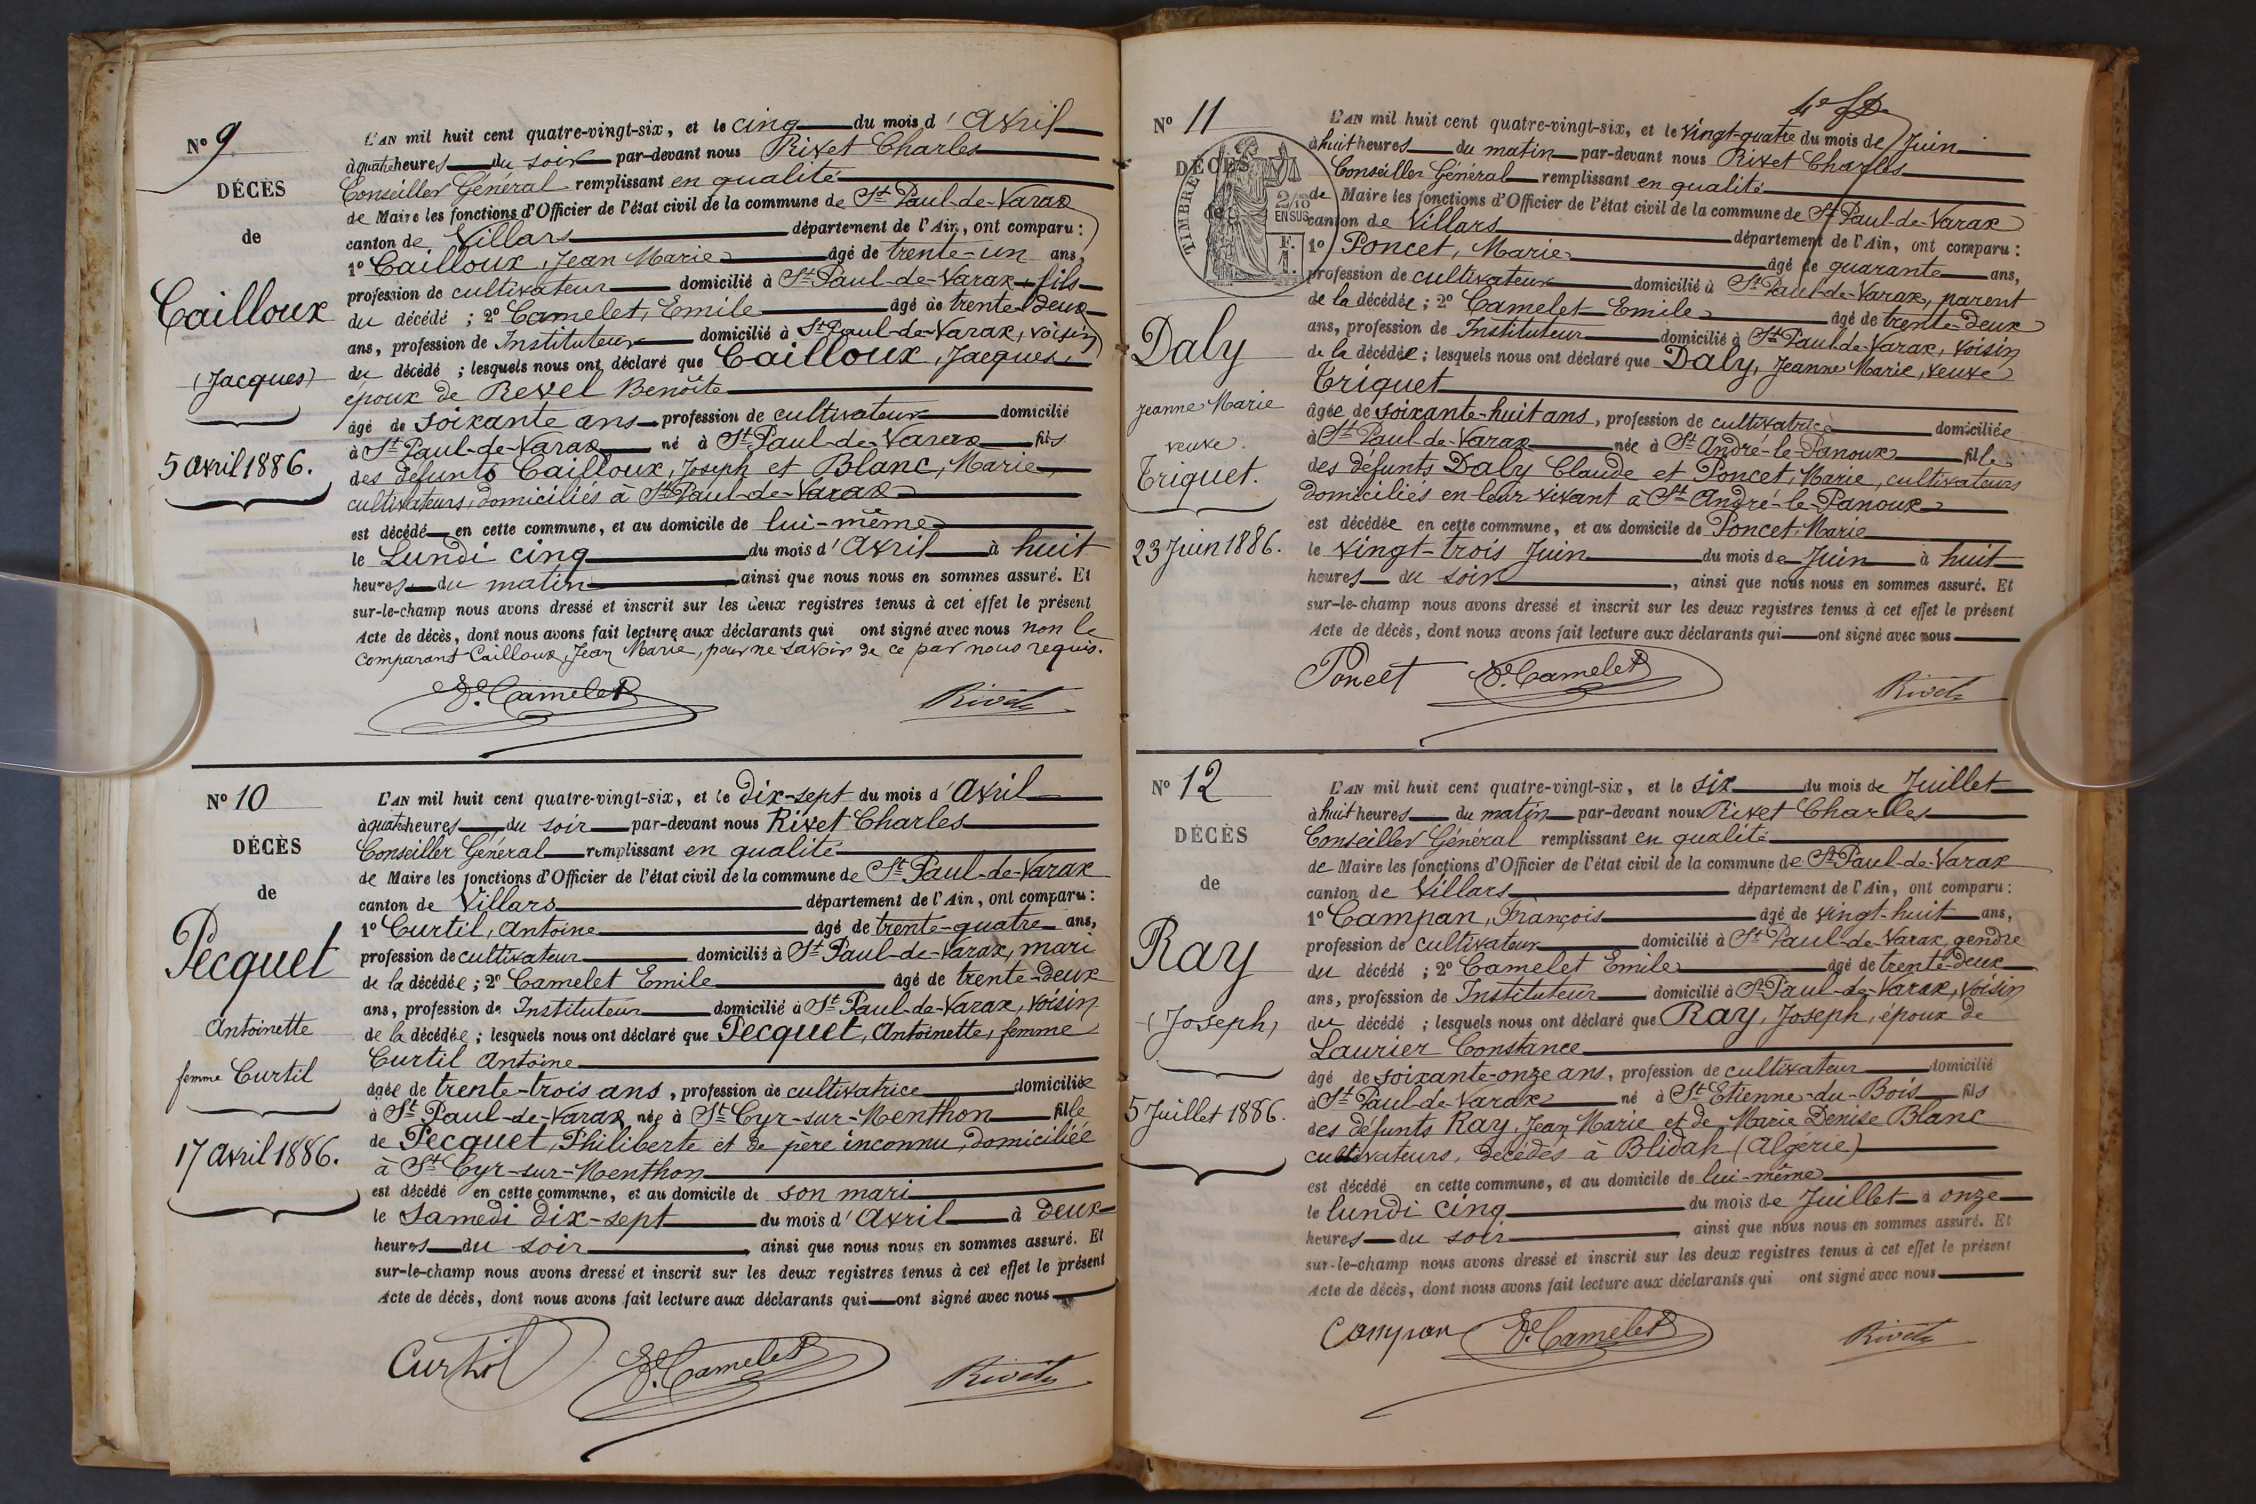 Nº 9
DÉCÈS
de
Cailloux
(Jacques)
5 Avril 1886.
L'AN mil huit cent quatre-vingt-six, et le cinq du mois d'Avril
à quatre heures du soir par-devant nous Rivet Charles
Conseiller Général remplissant en qualité
de Maire les fonctions d'Officier de l'état civil de la commune de St Paul-de-Varax
canton de Villars département de l'Ain, ont comparu :
1º Cailloux, Jean Marie âgé de trente-un ans,
profession de cultivateur domicilié à St Paul-de-Varax, fils
du décédé ; 2º Camelet, Emile âgé de trente-deux
ans, profession de Instituteur domicilié à St Paul-de-Varax, voisin
du décédé ; lesquels nous ont déclaré que Cailloux, Jacques,
époux de Revel Benoîte
âgé de soixante ans profession de cultivateur domicilié
à St Paul-de-Varax né à St Paul-de-Varax fils
des défunts Cailloux, Joseph et Blanc, Marie,
cultivateurs, domiciliés à St Paul-de-Varax
est décédé en cette commune, et au domicile de lui-même
le Lundi cinq du mois d'Avril à huit
heures du matin ainsi que nous nous en sommes assuré. Et
sur-le-champ nous avons dressé et inscrit sur les deux registres tenus à cet effet le présent
Acte de décès, dont nous avons fait lecture aux déclarants qui ont signé avec nous non le
comparant Cailloux, Jean Marie, pour ne savoir de ce par nous requis.
E. Camelet Rivet
Nº 10
DÉCÈS
de
Pecquet
Antoinette
femme Curtil
17 Avril 1886.
L'AN mil huit cent quatre-vingt-six, et le Dix-sept du mois d'Avril
à quatre heures du soir par-devant nous Rivet Charles
Conseiller Général remplissant en qualité
de Maire les fonctions d'Officier de l'état civil de la commune de St Paul-de-Varax
canton de Villars département de l'Ain, ont comparu :
1º Curtil, Antoine âgé de trente-quatre ans,
profession de cultivateur domicilié à St Paul-de-Varax, mari
de la décédée ; 2º Camelet Emile âgé de trente-deux
ans, profession de Instituteur domicilié à St Paul-de-Varax, voisin
de la décédée ; lesquels nous ont déclaré que Pecquet, Antoinette, femme
Curtil Antoine
âgée de trente-trois ans, profession de cultivatrice domiciliée
à St Paul-de-Varax née à St Cyr-sur-Menthon fille
de Pecquet, Philiberte et de père inconnu, domiciliée
à St Cyr-sur-Menthon
est décédé en cette commune, et au domicile de son mari
le Samedi dix-sept du mois d'Avril à deux
heures du soir, ainsi que nous nous en sommes assuré. Et
sur-le-champ nous avons dressé et inscrit sur les deux registres tenus à cet effet le présent
Acte de décès, dont nous avons fait lecture aux déclarants qui ont signé avec nous
Curtil E. Camelet Rivet
Nº 11
DÉCÈS
de
TIMBRE
2/10
EN SUS
F.
1.
Daly
Jeanne Marie
veuve
Triquet.
23 Juin 1886.
L'AN mil huit cent quatre-vingt-six, et le vingt-quatre du mois de Juin
à huit heures du matin par-devant nous Rivet Charles
Conseiller Général remplissant en qualité
de Maire les fonctions d'Officier de l'état civil de la commune de St Paul-de-Varax
canton de Villars département de l'Ain, ont comparu :
1º Poncet, Marie âgé de quarante ans,
profession de cultivateur domicilié à St Paul-de-Varax, parent
de la décédée ; 2º Camelet Emile âgé de trente-deux
ans, profession de Instituteur domicilié à St Paul-de-Varax, voisin
de la décédée ; lesquels nous ont déclaré que Daly, Jeanne Marie, veuve
Triquet
âgée de soixante-huit ans, profession de cultivatrice domiciliée
à St Paul-de-Varax née à St André-le-Panoux fille
des défunts Daly Claude et Poncet, Marie, cultivateurs
domiciliés en leur vivant à St André-le-Panoux
est décédée en cette commune, et au domicile de Poncet, Marie
le vingt-trois Juin du mois de Juin à huit
heures du soir, ainsi que nous nous en sommes assuré. Et
sur-le-champ nous avons dressé et inscrit sur les deux registres tenus à cet effet le présent
Acte de décès, dont nous avons fait lecture aux déclarants qui ont signé avec nous
Poncet E. Camelet Rivet
Nº 12
DÉCÈS
de
Ray
(Joseph)
5 Juillet 1886.
L'AN mil huit cent quatre-vingt-six, et le six du mois de Juillet
à huit heures du matin par-devant nous Rivet Charles
Conseiller Général remplissant en qualité
de Maire les fonctions d'Officier de l'état civil de la commune de St Paul-de-Varax
canton de Villars département de l'Ain, ont comparu :
1º Campan, François âgé de vingt-huit ans,
profession de cultivateur domicilié à St Paul-de-Varax, gendre
du décédé ; 2º Camelet Emile âgé de trente-deux
ans, profession de Instituteur domicilié à St Paul-de-Varax, voisin
du décédé ; lesquels nous ont déclaré que Ray, Joseph, époux de
Laurier Constance
âgé de soixante-onze ans, profession de cultivateur domicilié
à St Paul-de-Varax né à St Etienne-du-Bois fils
des défunts Ray, Jean Marie et de Marie Denise Blanc
cultivateurs, décédés à Blidah (Algérie)
est décédé en cette commune, et au domicile de lui-même
le lundi cinq du mois de Juillet à onze
heures du soir, ainsi que nous nous en sommes assuré. Et
sur-le-champ nous avons dressé et inscrit sur les deux registres tenus à cet effet le présent
Acte de décès, dont nous avons fait lecture aux déclarants qui ont signé avec nous
Campan E. Camelet Rivet